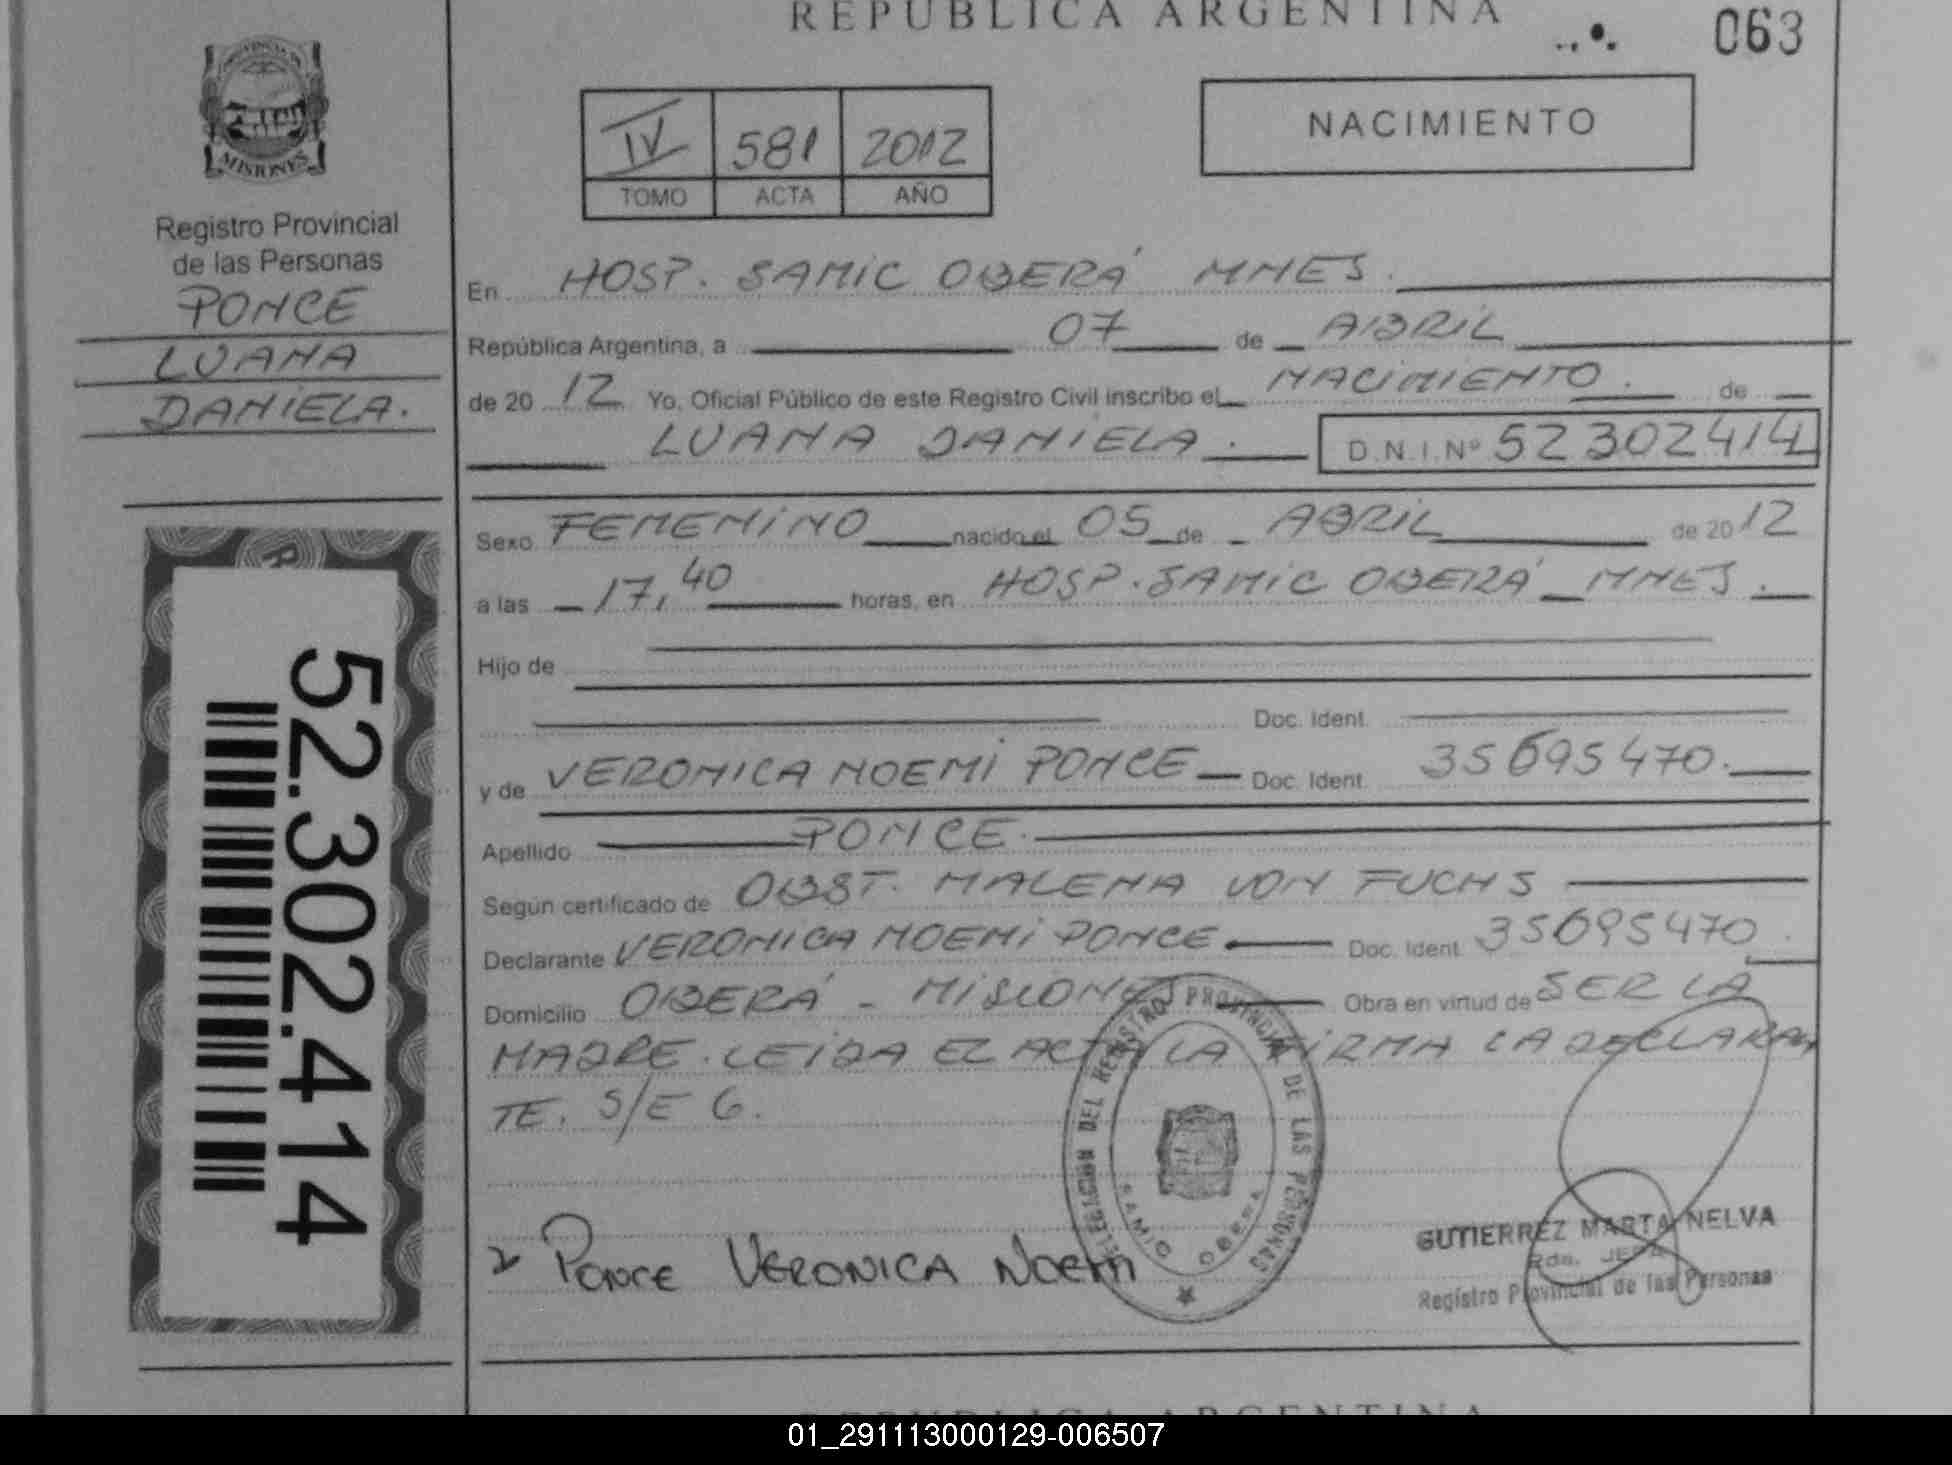 REPUBLICA ARGENTINA
063
PROVINCIA DE
MISIONES
Registro Provincial
de las Personas
PONCE
LUANA
DANIELA.
52.302.414
IV 581 2012
TOMO ACTA AÑO
NACIMIENTO
En HOSP. SAMIC OBERÁ MNES.
República Argentina, a 07 de ABRIL
de 20 12 Yo, Oficial Público de este Registro Civil inscribo el NACIMIENTO. de
LUANA DANIELA. D.N.I.Nº 52302414
Sexo FEMENINO nacido el 05 de ABRIL de 20 12
a las 17,40 horas, en HOSP. SAMIC OBERÁ MNES.
Hijo de
Doc. Ident.
y de VERONICA NOEMI PONCE Doc. Ident. 35695470.
Apellido PONCE.
Según certificado de OBST. MALENA VON FUCHS
Declarante VERONICA NOEMI PONCE Doc. Ident. 35695470.
Domicilio OBERÁ - MISIONES Obra en virtud de SER LA
MADRE. LEIDA EL ACTA LA FIRMA LA DECLARAN
TE. S/E 6.
DELEGACION DEL REGISTRO PROVINCIAL DE LAS PERSONAS
SAMIC OBERA
Ponce VERONICA NOEMI
GUTIERREZ MARTA NELVA
Rda. JEFA
Registro Provincial de las Personas
REPUBLICA ARGENTINA
01_291113000129-006507